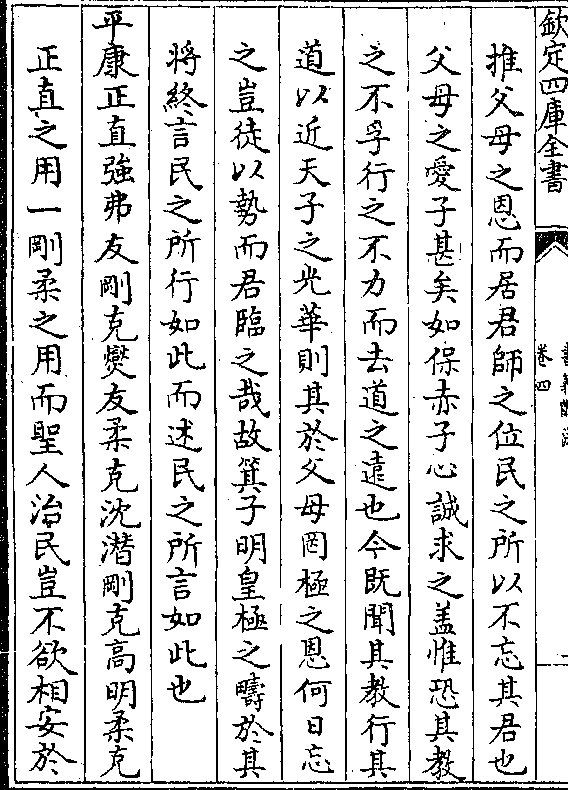 欽定四庫全書
卷四
推父母之恩而居君師之位民之所以不忘其君也
父母之愛子甚矣如保赤子心誠求之盖惟恐其教
之不孚行之不力而去道之遠也今既聞其教行其
道以近天子之光華則其於父母罔極之恩何日忘
之豈徒以勢而君臨之哉故箕子明皇極之疇於其
将終言民之所行如此而述民之所言如此也
平康正直強弗友剛克燮友柔克沈潛剛克高明柔克
正直之用一剛柔之用而聖人治民豈不欲相安於